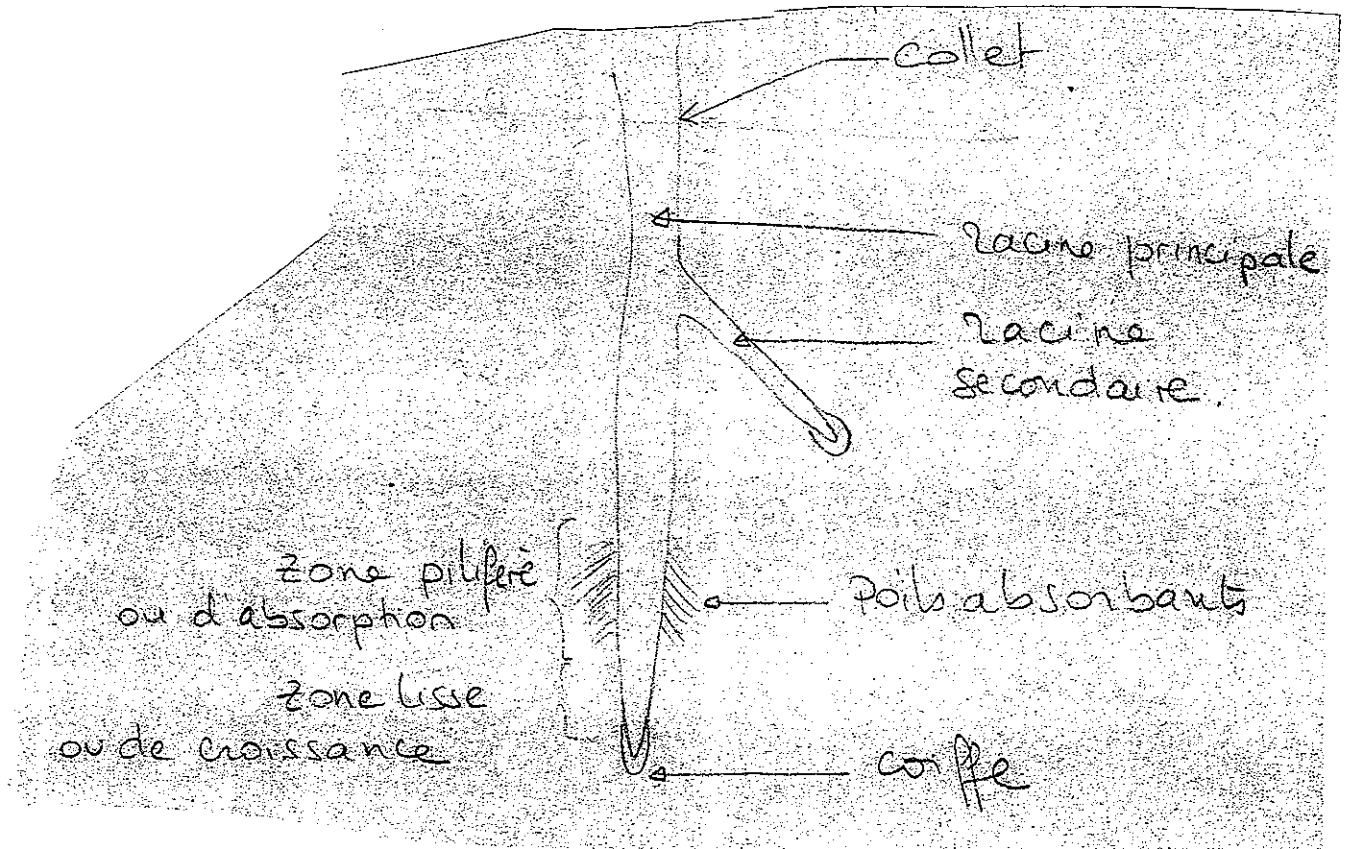 Collet
racine principale
racine
secondaire.
zone piliferè
ou d'absorption
Poils absorbants
zone lisse
ou de croissance
coiffe